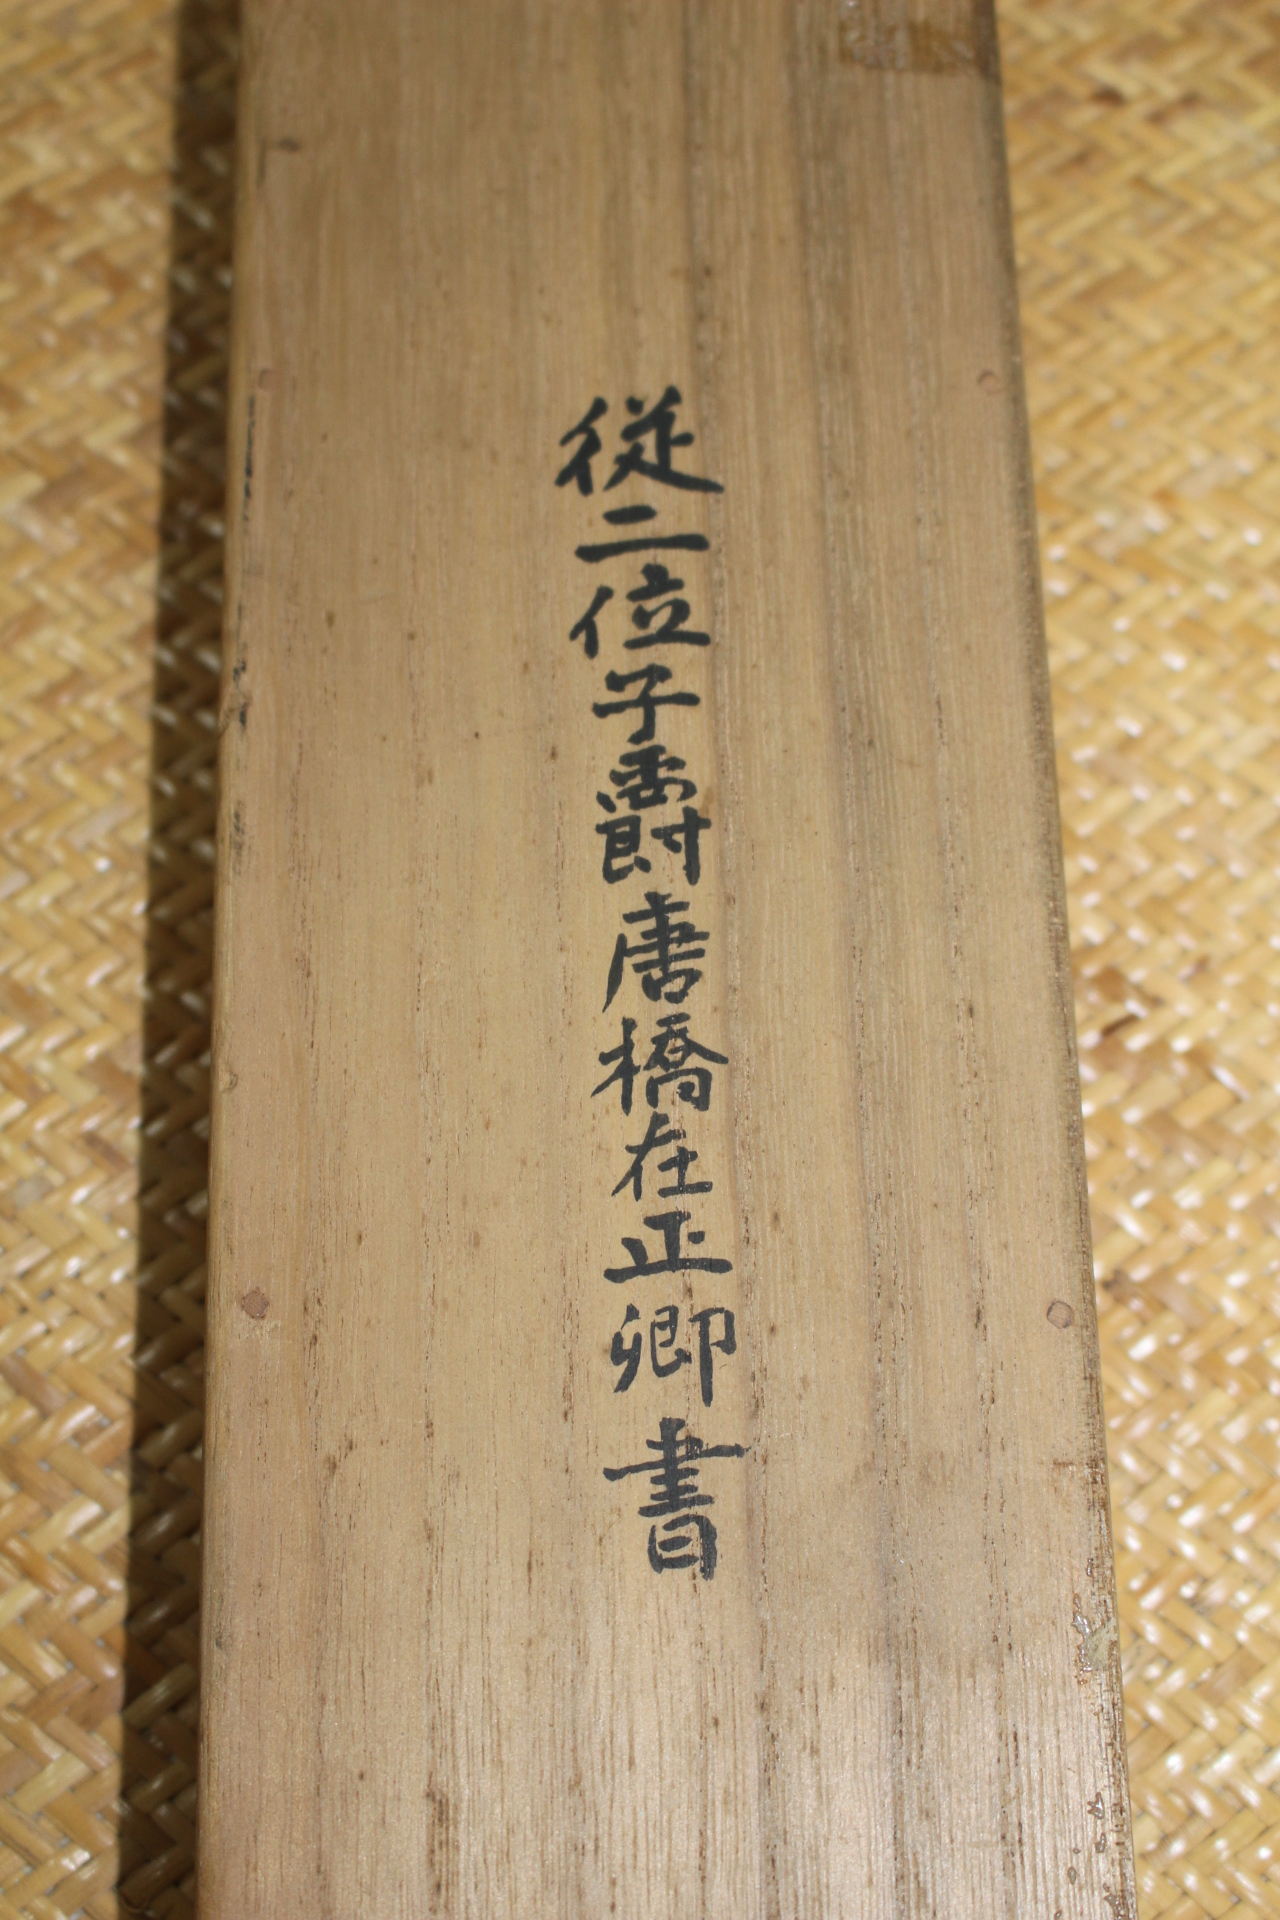 従二位子爵唐橋在正卿書